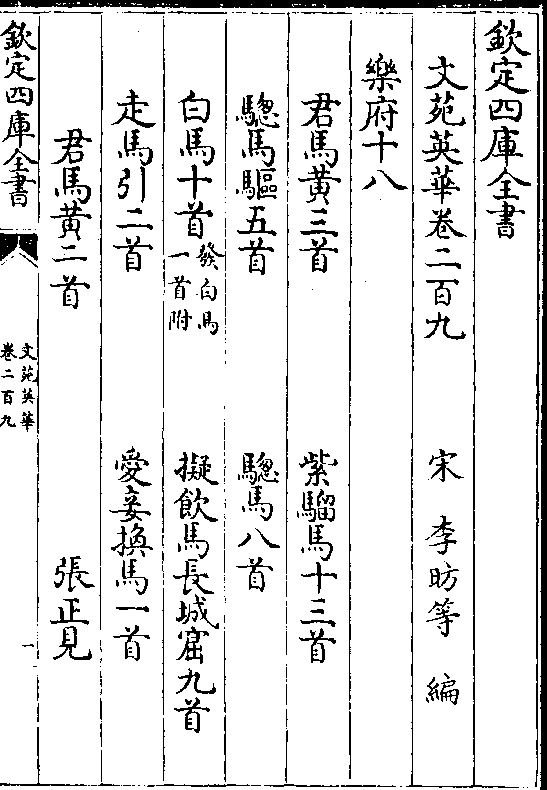 欽定四庫全書
文苑英華卷二百九　宋　李昉等　編
樂府十八
君馬黃三首　紫騮馬十三首
驄馬驅五首　驄馬八首
白馬十首發白馬一首附　擬飲馬長城窟九首
走馬引二首　愛妾換馬一首
君馬黃二首　張正見
欽定四庫全書　文苑英華卷二百九　一